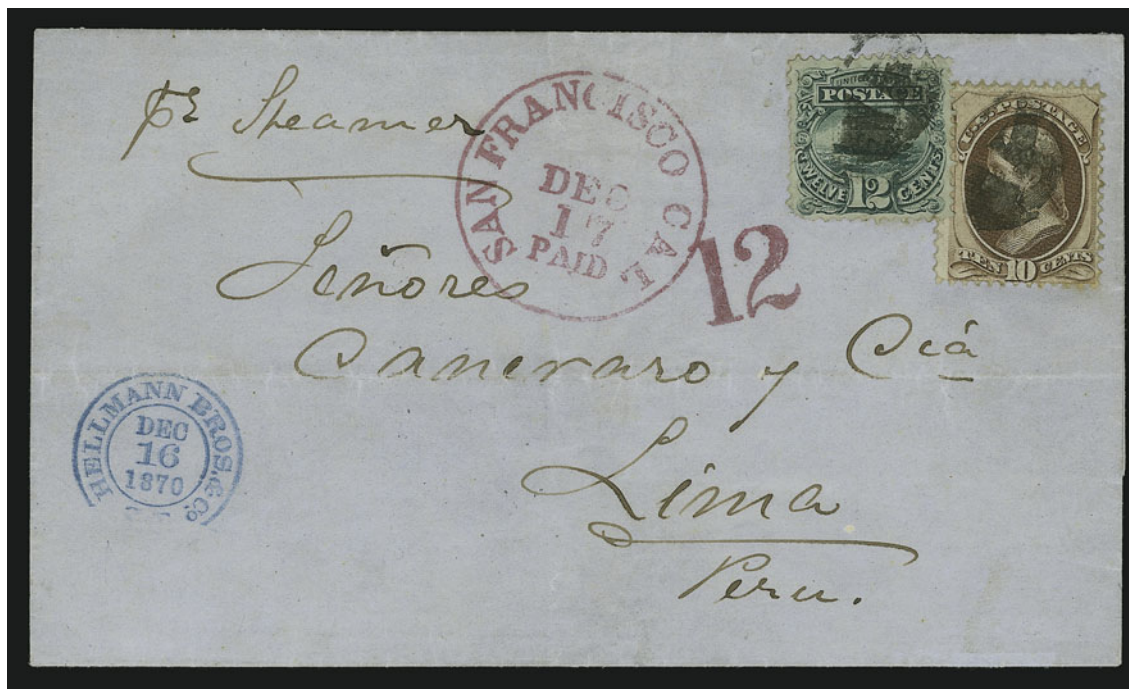 pr Steamer
SAN FRANCISCO CAL
DEC
17
PAID
12
UNITED
POSTAGE
TWELVE 12 CENTS
U.S. POSTAGE
TEN 10 CENTS
Señores
Canevaro y Cia
Lima
Peru.
HELLMANN BROS. & Co.
DEC
16
1870